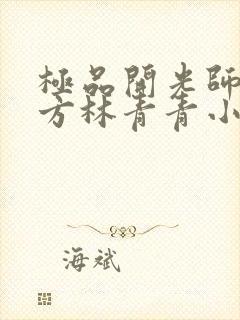 極品開光師
方林青青小
海斌